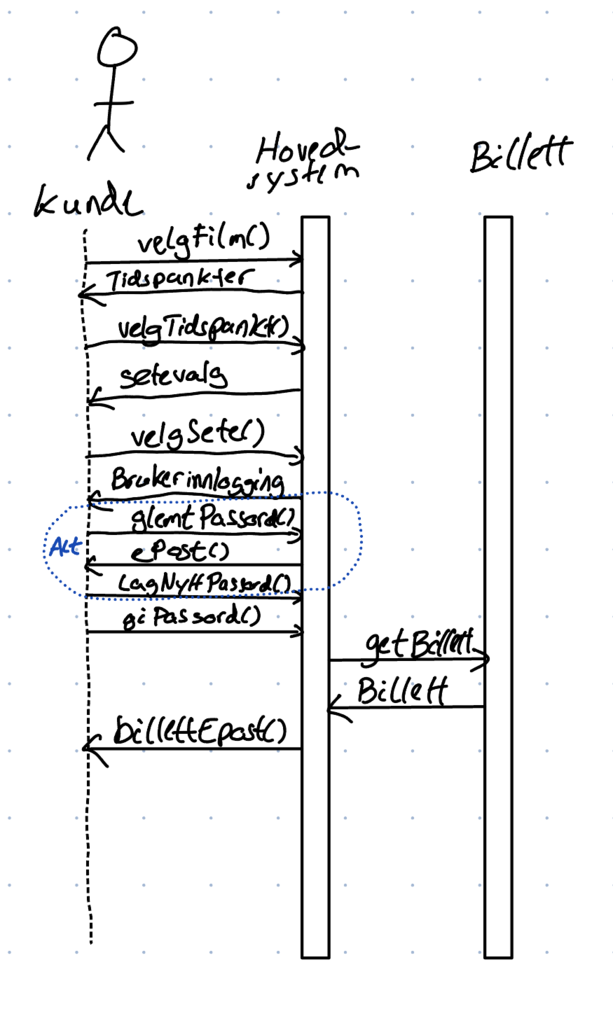 Kunde
Hoved-
system
Billett
velgFilm()
Tidspunkter
velgTidspunkt()
setevalg
velgSete()
Brukerinnlogging
Alt
glemtPassord()
ePost()
LagNyttPassord()
giPassord()
getBillett
Billett
billettEpost()